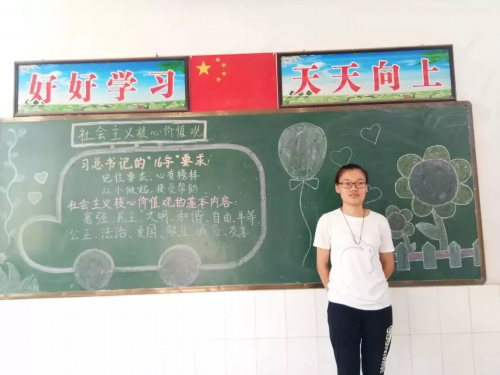 好好学习
天天向上
社会主义核心价值观
习总书记的“16字”要求:
记住要求、心有榜样
从小做起、接受帮助
社会主义核心价值观的基本内容:
富强、民主、文明、和谐、自由、平等
公正、法治、爱国、敬业、诚信、友善